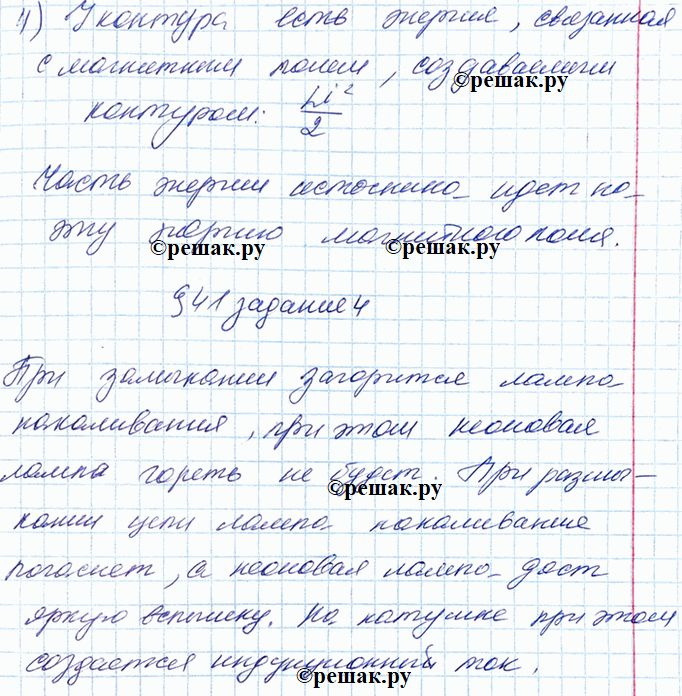 4) У контура есть энергия, связанная
с магнитным полем, создаваемым
©решак.ру
контуром: Li²/2
Часть энергии источника идет на
эту энергию магнитного поля.
©решак.ру ©решак.ру
§41 задание 4
При замыкании загорится лампа
накаливания, при этом неоновая
©решак.ру
лампа гореть не будет. При размы-
©решак.ру
кании цепи лампа накаливания
погаснет, а неоновая лампа даст
яркую вспышку. На катушке при этом
создается индукционный ток.
©решак.ру